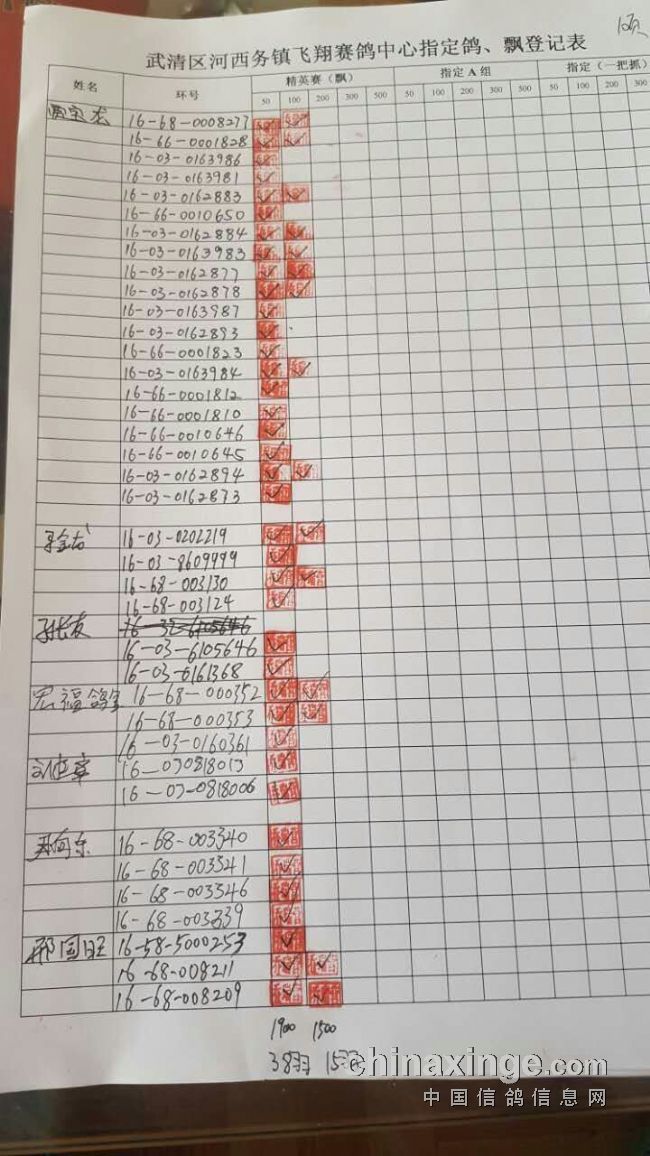 顷
武清区河西务镇飞翔赛鸽中心指定鸽、飘登记表
姓名 环号 精英赛（飘） 指定A组 指定（一把抓）
50 100 200 300 500 50 100 200 300 500 50 100 200 300
16-68-0008277
16-66-0001828
16-03-0163986
16-03-0163981
16-03-0162883
16-66-0010650
16-03-0162884
16-03-0163983
16-03-0162877
16-03-0162878
16-03-0163987
16-03-0162893
16-66-0001823
16-03-0163984
16-66-0001812
16-66-0001810
16-66-0010646
16-66-0010645
16-03-0162894
16-03-0162873
16-03-0202219
16-03-8609999
16-68-003130
16-68-003124
16-32-6105646
16-03-6105646
16-03-6161368
宏福鸽舍 16-68-000352
16-68-000353
16-03-0160361
16-030818013
16-03-0818006
16-68-003340
16-68-003341
16-68-003346
16-68-003339
邢国旺 16-58-5000253
16-68-008211
16-68-008209
1900 1500
38羽 15羽
chinaxinge.com
中国信鸽信息网